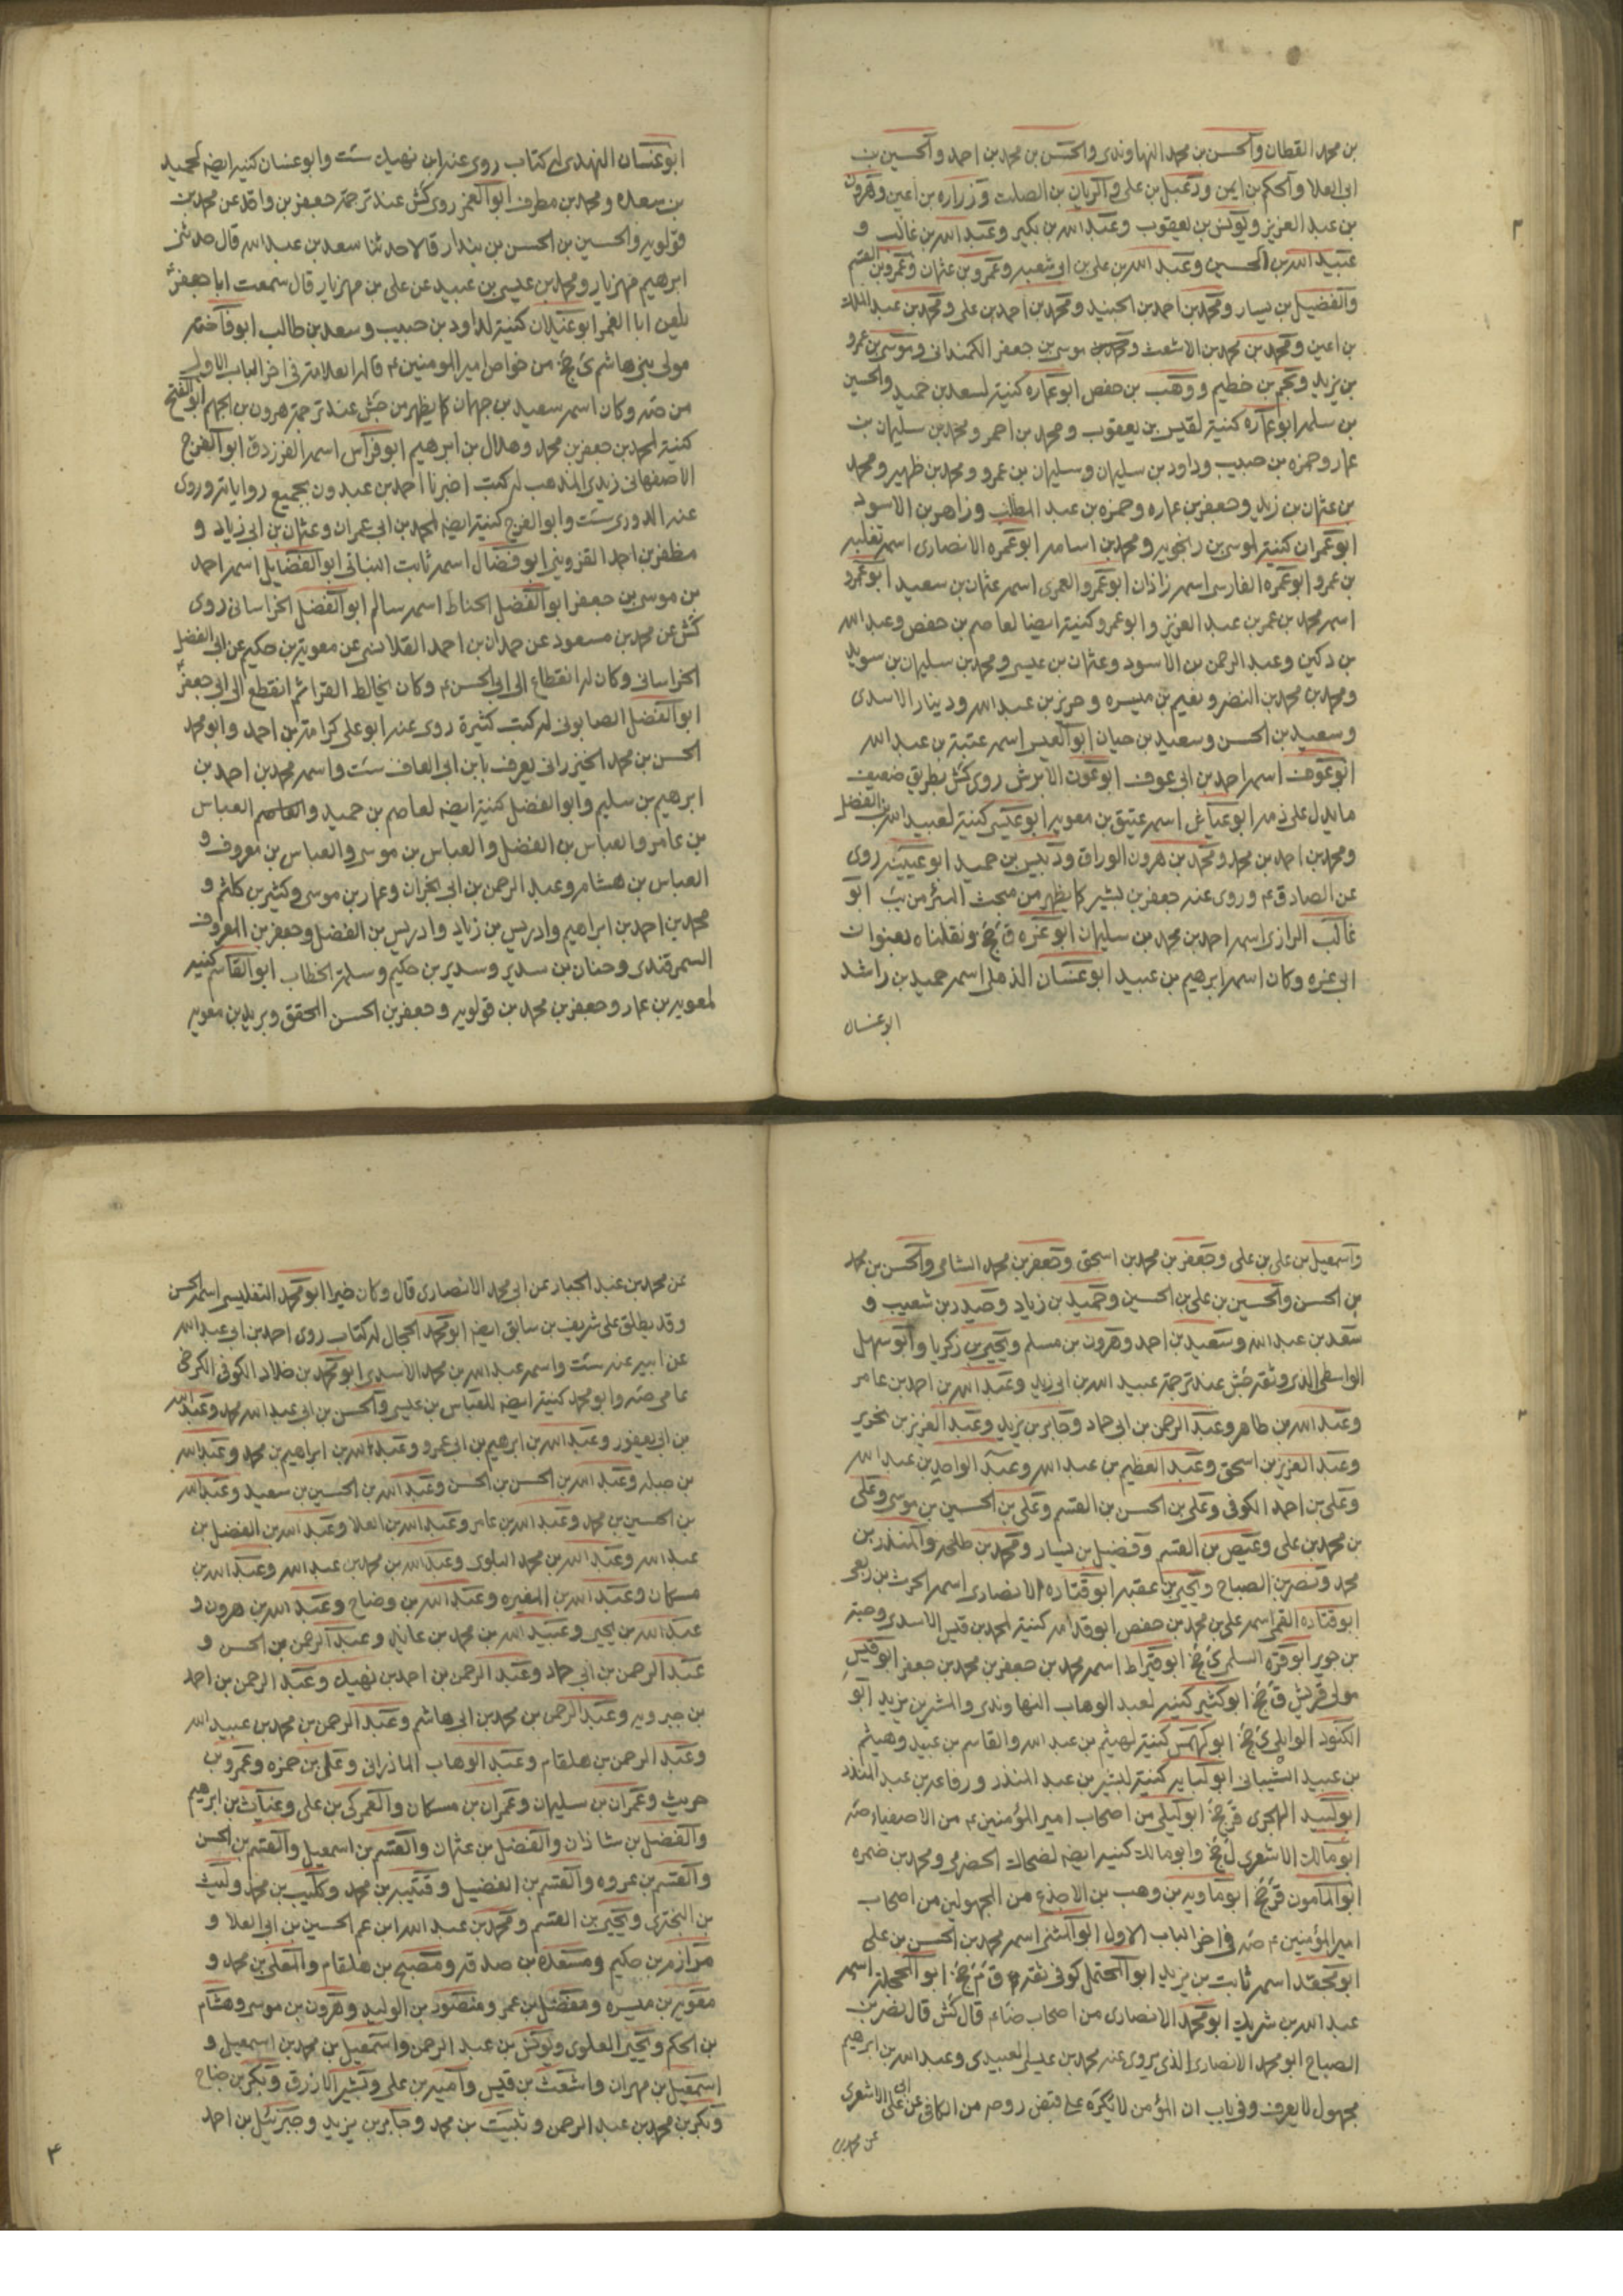 بن محمد القطان والحسن بن محمد النهاوندی والحسن بن محمد بن احمد والحسین بن
ابی العلا والحکم بن ایمن ودعبل بن علی والریان بن الصلت وزراره بن اعین وهرون
بن عبد العزیز ویونس بن یعقوب وعبد الله بن بکیر وعبد الله بن غالب و
عبید الله بن الحسین وعبد الله بن علی بن ابی شعبه وعمرو بن عثمان وعمرو بن القسم
والفضیل بن یسار ومحمد بن احمد بن الجنید ومحمد بن احمد بن علی ومحمد بن عبد الملک
بن اعین ومحمد بن محمد بن الاشعث ومحمد بن موسی بن جعفر الکمندانی وموسی بن عمرو
بن یزید ونجم بن خطیم ووهب بن حفص ابو عماره کنیته لسعد بن حمید والحسین
بن سلمه ابو عماره کنیته لقیس بن یعقوب ومحمد بن احمر ومحمد بن سلیمان بن
عمار وحمزه بن حبیب وداود بن سلیمان وسلیمان بن عمرو ومحمد بن ظهیر ومحمد
بن عثمان بن زید وجعفر بن عماره وحمزه بن عبد المطلب وزاهر بن الاسود
ابو عمران کنیته لموسی بن رنجویه ومحمد بن اسامه ابو عمره الانصاری اسمه ثعلبه
بن عمرو ابو عمره الفارسی اسمه زاذان ابو عمرو العمری اسمه عثمان بن سعید ابو عمرو
اسمه محمد بن عمر بن عبد العزیز وابو عمرو کنیته ایضا لعاصم بن حفص وعبد الله
بن دکین وعبد الرحمن بن الاسود وعثمان بن عیسی ومحمد بن سلیمان بن سوید
ومحمد بن محمد بن النضر ونعیم بن میسره وحریز بن عبد الله ودینار الاسدی
وسعید بن الحسن وسعید بن حیان ابو العمیس اسمه عتبة بن عبد الله
ابو عوف اسمه احمد بن ابی عوف ابو عون الابرش روی کش بطریق ضعیف
ما یدل علی ذمه ابو عیاض اسمه عتیق بن معویه ابو عیسی کنیته لعبید الله بن الفضل
ومحمد بن احمد بن محمد ومحمد بن هرون الوراق ودبیس بن حمید ابو عیینه روی
عن الصادق ع وروی عنه جعفر بن بشیر کما یظهر من مبحث البئر من یب ابو
غالب الرازی اسمه احمد بن محمد بن سلیمان ابو غره ق جخ ونقلناه بعنوان
ابی عزه وکان اسمه ابرهیم بن عبید ابو غسان الذهلی اسمه حمید بن راشد
ابو غسان
ابو غسان النهدی له کتاب روی عنه ابن نهیک ست وابو غسان کنیة ایضه لحمید
بن سعده ومحمد بن مطرف ابو الغمر روی کش عند ترجمة جعفر بن واقد عن محمد بن
قولویه والحسین بن الحسن بن بندار قالا حدثنا سعد بن عبد الله قال حدثنی
ابرهیم مهزیار ومحمد بن عیسی بن عبید عن علی بن مهزیار قال سمعت ابا جعفر ع
یلعن ابا الغمر ابو غیلان کنیته لداود بن حبیب وسعد بن طالب ابو فاخته
مولی بنی هاشم ی جخ من خواص امیر المومنین ع قاله العلامة فی اخر الباب الاول
من صه وکان اسمه سعید بن جهان کما یظهر من جش عند ترجمة هرون بن الجهم ابو الفتح
کنیته لمحمد بن جعفر بن محمد وهلال بن ابرهیم ابو فراس اسمه الفرزدق ابو الفرج
الاصفهانی زیدی المذهب له کتب اخبرنا احمد بن عبدون بجمیع روایاته وروی
عنه الدوری ست وابو الفرج کنیته ایضه لمحمد بن ابی عمران وعثمان بن ابی زیاد و
مظفر بن احمد القزوینی ابو فضال اسمه ثابت البنانی ابو الفضایل اسمه احمد
بن موسی بن جعفر ابو الفضل الحناط اسمه سالم ابو الفضل الخراسانی روی
کش عن محمد بن مسعود عن حمدان بن احمد القلانسی عن معویة بن حکیم عن ابی الفضل
الخراسانی وکان له انقطاع الی ابی الحسن ع وکان یخالط القراء ثم انقطع الی ابی جعفر ع
ابو الفضل الصابونی له کتب کثیرة روی عنه ابو علی کرامة بن احمد وابو محمد
الحسن بن محمد الخیزرانی یعرف بابن ابی العاف ست واسمه محمد بن احمد بن
ابرهیم بن سلیم وابو الفضل کنیته ایضه لعاصم بن حمید والعاصم العباس
بن عامر والعباس بن الفضل والعباس بن موسی والعباس بن معروف و
العباس بن هشام وعبد الرحمن بن ابی نجران وعمار بن موسی وکثیر بن کلثم و
محمد بن احمد بن ابراهیم وادریس بن زیاد وادریس بن الفضل وجعفر بن المعروف
السمرقندی وحنان بن سدیر وسدیر بن حکیم وسلمة الخطاب ابو القاسم کنیته
لمعویه بن عمار وجعفر بن محمد بن قولویه وجعفر بن الحسن المحقق وبرید بن معویه
واسمعیل بن علی بن علی وجعفر بن محمد بن اسحق وجعفر بن محمد الشامی والحسن بن محمد
بن الحسن والحسین بن علی بن الحسین وحمید بن زیاد وحیدر بن شعیب و
سعد بن عبد الله وسعید بن احمد وهرون بن مسلم ویحیی بن زکریا وابو سهل
الواسطی الذی وثقه جش عند ترجمة عبید الله بن ابی زید وعبد الله بن احمد بن عامر
وعبد الله بن طاهر وعبد الرحمن بن ابی حماد وجابر بن یزید وعبد العزیز بن نحریر
وعبد العزیز بن اسحق وعبد العظیم بن عبد الله وعبد الواحد بن عبد الله
وعلی بن احمد الکوفی وعلی بن الحسن بن القسم وعلی بن الحسین بن موسی وعلی
بن محمد بن علی وعیص بن القسم وفضیل بن یسار ومحمد بن طلحه والمنذر بن
محمد ونصر بن الصباح ویحیی بن عقبه ابو قتاده الانصاری اسمه الحرث بن ربعی
ابو قتاده القمی اسمه علی بن محمد بن حفص ابو قدامه کنیته لمحمد بن قیس الاسدی وحبة
بن جویر ابو قره السلمی ی جخ ابو قیراط اسمه محمد بن جعفر بن محمد بن جعفر ابو قیس
مولی قریش ق جخ ابو کثیر کنیته لعبد الوهاب النهاوندی والمشر بن یزید ابو
الکنود الوایلی ی جخ ابو کهمس کنیته لهیثم بن عبد الله والقاسم بن عبید وهیثم
بن عبید الشیبانی ابو لبابه کنیته لبشیر بن عبد المنذر ورفاعه بن عبد المنذر
ابو لبید الهجری قر جخ ابو لیلی من اصحاب امیر المؤمنین ع من الاصفیاء صه
ابو مالک الاشعری ل جخ وابو مالک کنیته ایضه لضحاک الحضرمی ومحمد بن ضمره
ابو المامون قر جخ ابو ماویه بن وهب بن الاجذع من المجهولین من اصحاب
امیر المؤمنین ع صه فی اخر الباب الاول ابو المثنی اسمه محمد بن الحسن بن علی
اسمه ثابت بن یزید ابو المحتمل کوفی ثقه ق م جخ ابو المحجلة اسمه
عبد الله بن شریک ابو محمد الانصاری من اصحاب ضاء قال کش قال نصر بن
الصباح ابو محمد الانصاری الذی یروی عنه محمد بن عیسی العبیدی وعبد الله بن ابرهیم
مجهول لا یعرف وفی باب ان المؤمن لا یکره علی قبض روحه من الکافی عن ابی علی الاشعری
عن محمد بن
عن محمد بن عبد الجبار عن ابی محمد الانصاری قال وکان خیرا ابو محمد التفلیسی اسمه الحسن
وقد یطلق علی شریف بن سابق ایضه ابو محمد الحجال له کتاب روی احمد بن ابی عبد الله
عن ابیه عنه ست واسمه عبد الله بن محمد الاسدی ابو محمد بن خلاد الکوفی الکرخی
عامی صه وابو محمد کنیته ایضه للعباس بن عیسی والحسن بن ابی عبد الله محمد وعبد الله
بن ابی یعفور وعبد الله بن ابرهیم بن ابی عمرو وعبد الله بن ابراهیم بن محمد وعبد الله
بن جبله وعبد الله بن الحسن بن الحسن وعبد الله بن الحسین بن سعید وعبد الله
بن الحسین بن محمد وعبد الله بن عامر وعبد الله بن العلا وعبد الله بن الفضل بن
عبد الله وعبد الله بن محمد البلوی وعبد الله بن محمد بن عبد الله وعبد الله بن
مسکان وعبد الله بن المغیره وعبد الله بن وضاح وعبد الله بن هرون و
عبد الله بن یحیی وعبید الله بن محمد بن عائذ وعبد الرحمن بن الحسن و
عبد الرحمن بن ابی حماد وعبد الرحمن بن احمد بن نهیک وعبد الرحمن بن احمد
بن جبرویه وعبد الرحمن بن محمد بن ابی هاشم وعبد الرحمن بن محمد بن عبید الله
وعبد الرحمن بن هلقام وعبد الوهاب الماذرانی وعلی بن حمزه وعمرو بن
حریث وعمران بن سلیمان وعمران بن مسکان والعمرکی بن علی وغیاث بن ابرهیم
والفضل بن شاذان والفضل بن عثمان والقسم بن اسمعیل والقسم بن الحسن
والقسم بن عروه والقسم بن الفضیل وقتیبه بن محمد وکلیب بن محمد ولیث
بن البختری ویحیی بن القسم ومحمد بن عبد الله ابن عم الحسین بن ابی العلا و
مرازم بن حکیم ومسعدة بن صدقه ومصبح بن هلقام والمعلی بن محمد و
معویه بن میسره ومفضل بن عمر ومنصور بن الولید وهرون بن موسی وهشام
بن الحکم ویحیی العلوی ویونس بن عبد الرحمن واسمعیل بن محمد بن اسمعیل و
اسمعیل بن مهران واشعث بن قیس وامیه بن علی وبشیر الازرق وبکر بن جناح
وبکر بن محمد بن عبد الرحمن وثبیت بن محمد وجابر بن یزید وجبرئیل بن احمد
۴